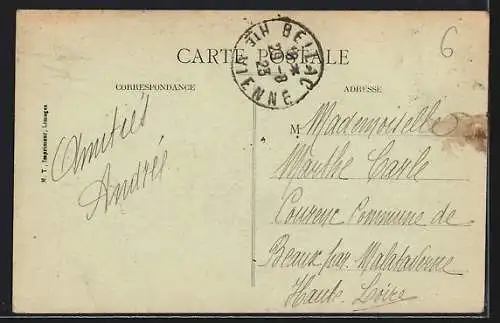 6
CARTE POSTALE
BELLAC
* 18
23-8
23
HTE VIENNE
CORRESPONDANCE
ADRESSE
Amitiés
André
M Mademoiselle
Marthe
Commune de
Beaux par Malataverne
Haute-Loire
M. T., Imprimeur, Limoges